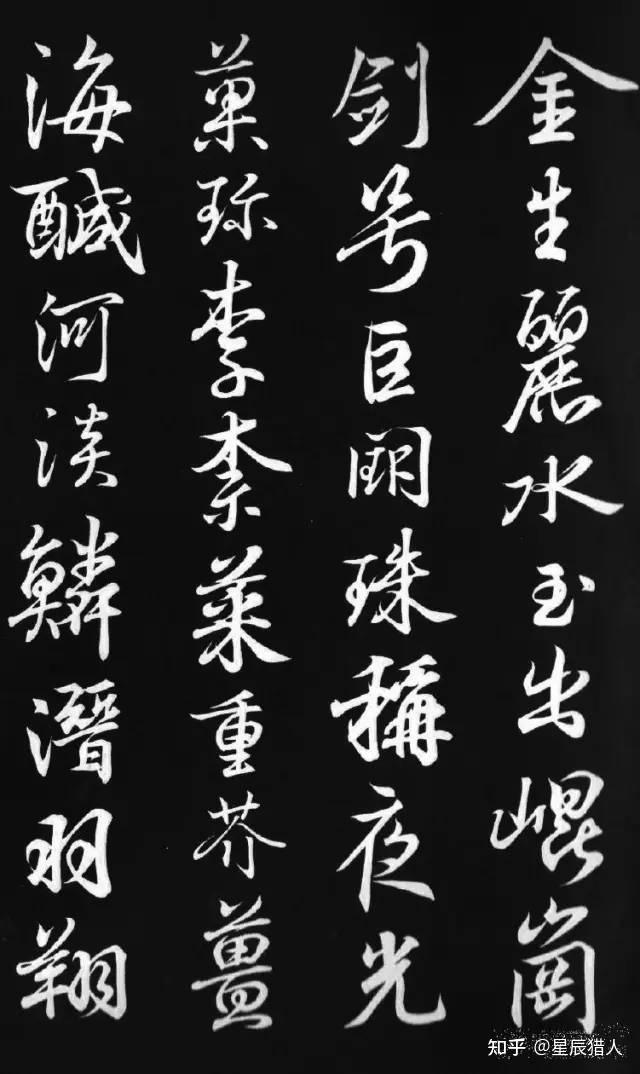 金生麗水玉出崐崗
剑号巨闕珠稱夜光
菓珎李柰菜重芥薑
海醎河淡鱗潛羽翔
知乎 @星辰猎人